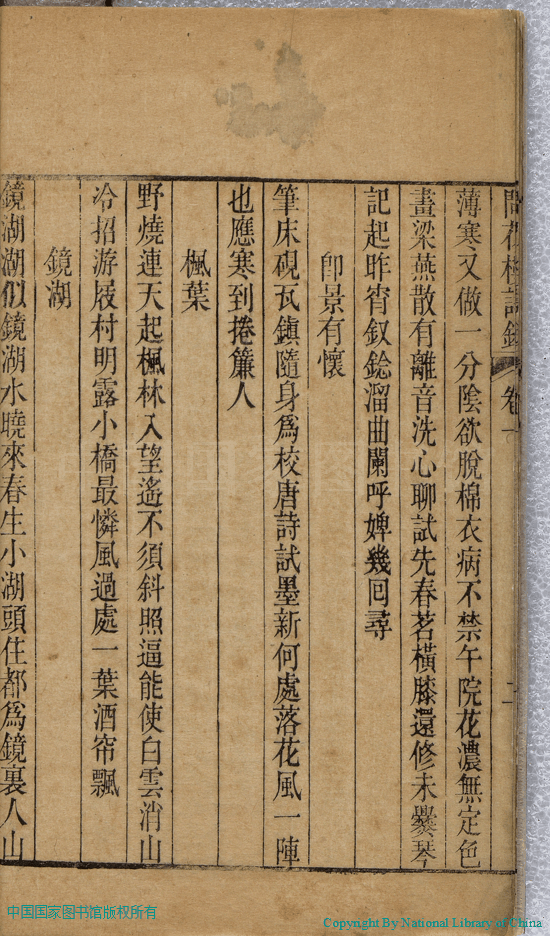 問花樓詩鈔 卷一 二
薄寒又做一分陰欲脫棉衣病不禁午院花濃無定色
畫梁燕散有離音洗心聊試先春茗橫膝還修未爨琴
記起昨宵釵艌溜曲闌呼婢幾回尋
卽景有懷
筆床硯瓦鎮隨身爲校唐詩試墨新何處落花風一陣
也應寒到捲簾人
楓葉
野燒連天起楓林入望遙不須斜照逼能使白雲消山
冷招游屐村明露小橋最憐風過處一葉酒帘飄
鏡湖
鏡湖湖似鏡湖水曉來春生小湖頭住都爲鏡裏人山
中国国家图书馆版权所有
Copyright By National Library of China